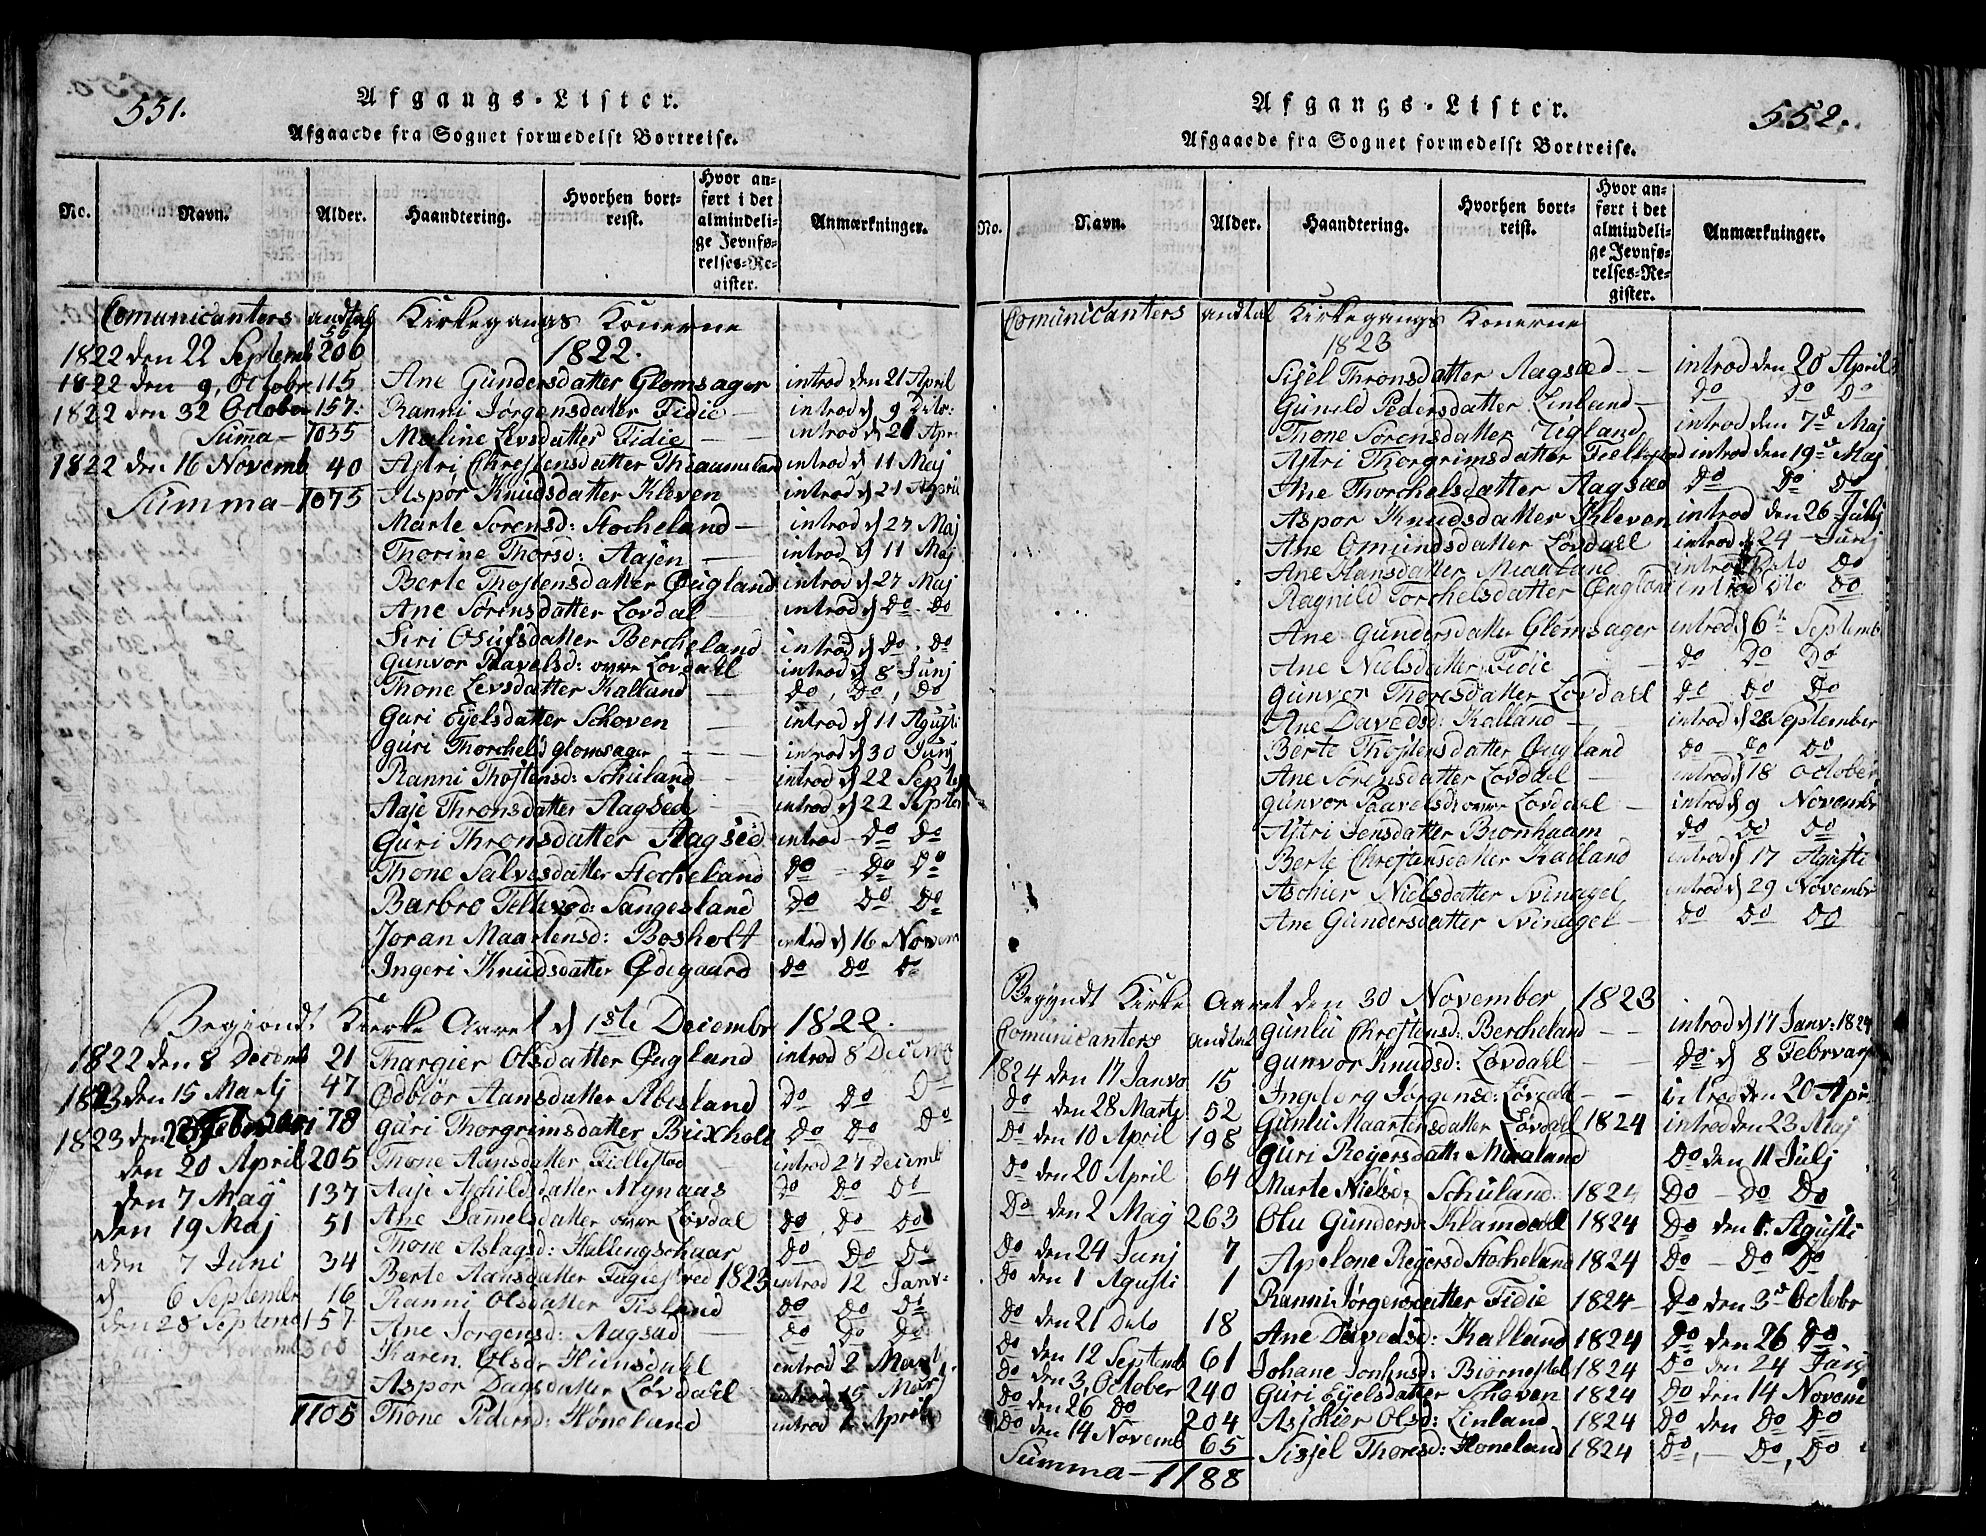 551.
Afgangs-Lister.
Afgaaede fra Sognet formedelst Bortreise.
No. Navn. Alder. Haandtering. Hvorhen bortreist. Hvor anført i det almindelige Jevnførelses-Register. Anmærkninger.
Comunicanters andtal Kirkegangs Konerne
55
1822 den 22 Septemb 206 1822.
1822 den 9, Octobr 115 Ane Gundersdatter Glomsager introd den 21 April
1822 den 32 October 157. Ranni Jørgensdatter Fidie introd d 9 Dito:
Suma 1035 Maline Levsdatter Fidie introd d 21 Apr
1822 den 16 Novemb 40 Astri Chrestensdatter introd d 11 Maj
Summa 1075 Aspør Knudsdatter Kleven introd d 21 April
Marte Sorensd: Stocheland introd d 27 Maj
Thorine Thorsd: Aasen introd d 11 Maj
Berte Thostensdatter Øugland introd d 27 Maj
Ane Sørensdatter Lovdal introd d Do Do
Siri Osufsdatter Bercheland introd d Do Do
Gunvor Paavelsd: Løvdahl introd d 8 Junj
Thone Levsdatter Kalland Do, Do, Do
Guri Eyelsdatter Schoven introd d 11 Agusti
Guri Thorchelsd glomsager introd d 30 Junj
Ranni Thostensd: Schuland introd d 22 Septe
Aase Thronsdatter Aagsed introd d 22 Septe
Guri Thronsdatter Aagsed introd Do Do
Thone Salvesdatter Stocheland Do Do Do
Barbro Tellevsd: Sangesland Do Do Do
Joran Maartensd: Bosholt introd d 16 Novem
Ingeri Knudsdatter Ødegaard Do Do Do
Begyondt Kierke Aaret d 1ste Decembr 1822.
1822 den 8 Decemb 21 Thargier Olsdatter Øugland introd 8 Decemb
1823 den 15 Martj 47 Odbiør Aansdatter Abesland Do Do Do
1823 den 178 Guri Thorgrimsdatter Buxholt Do Do Do
den 20 April 205 Thone Aansdatter Fidlestad introd 27 Decemb
den 7 Maij 137 Aase Aschildsdatter Mynaas Do Do Do
den 19 Maj 51 Ane Damelsdatter Løvdal Do, Do Do
den 7 Juni 34 Thone Aslagsd: Hullingschaar Do Do Do
d 6 Septembr 16 Berte Aansdatter 1823 introd 12 Janv:
den 28 Septemb 157 Ranni Olsdatter Tisland Do Do Do
Ane Jorgensd: Aagsad Do Do Do
Karen Olsdr Himsdahl introd 2 Mart
Aspør Dagsdatter Løvdahl introd 15 Mart
1105 Thone Pedersd: Høneland introd 1 April
552.
Afgangs-Lister.
Afgaaede fra Sognet formedelst Bortreise.
No. Navn. Alder. Haandtering. Hvorhen bortreist. Hvor anført i det almindelige Jevnførelses-Register. Anmærkninger.
Comunicanters andtal Kirkegangs Konerne
1823
Sisel Thronsdatter Aagsæd introd den 20 April
Gunild Pedersdatter Linland Do Do Do
Thone Sorensdatter Ugland introd den 7d Maj
Astri Thorgrimsdatter introd den 19de Maj
Ane Thorchelsdatter Aagsæd Do Do Do
Aspør Knudsdatter Kleven introd den 26 Julij
Ane Omundsdatter Løvdall introd d 24 Junj
Ane Hansdatter Mianland introd Dito Do
Ragnild Torchelsdatter Øugland introd Dito Do
Ane Gundersdatter Glomsager introd d 6te Septemb
Ane Nielsdatter Fidie Do Do Do
Gunvor Thoresdatter Lovdahl Do Do Do
Ane Davedsd: Kalland introd d 28 September
Berte Thostensdatter Øugland Do Do Do
Ane Sorensdatter Løvdal introd d 18 October
Gunvor Paavelsd Løvdahl introd d 9 Novembr
Astri Jensdatter Bionhaam Do Do Do
Berte Chrestensdatter Kalland introd d 17 Agusti
Aschier Nielsdatter Svinagel introd d 29 Novembr
Ane Gundersdatter Svinagel Do Do Do
Begyndt Kirke Aaret den 30 November 1823
Comunicanters andtal Gunlu Chrestensd: Bercheland introd d 17 Janv: 1824
1824 den 17 Janva 15 Gunvor Knudsd: Løvdahl Do d 8 Febrvary
Do den 28 Marti 52 Ingeborg Jørgensd: Løvdahl introd den 20 Apr
Do den 10 April 198 Gunlu Maartensdatter Løvdahl 1824 introd den 23 Maj
Do den 20 April 64 Guri Reyersdatt: Mikaland Do den 11 Julj
Do den 2 Mag 263 Marte Nielsd: Schuland: 1824 Do Do Do
Do den 24 Junj 7 Olu Gundersd: Klamdahl 1824 Do den 1. Agusti
Do den 1 Agusti 1 Apelone Reyersd Stocheland 1824 Do Do Do
Do den 21 Dito 18 Ranni Jørgensdatter Fidie 1824 Do den 3d Octobr
Do den 12 Septemb 61 Ane Davedsd: Kalland 1824 Do den 26 Do
Do den 3, October 240 Johane Jonhnsd: Biørnestøl 1824 Do den 24
Do den 26 Do 204 Guri Eyelsdatter Schoven 1824 Do den 14 Novem
Do den 14 Novemb 65 Aschier Olsd: Linland 1824 Do den Do Do
Summa 1188 Sissel Thoresd: Honeland 1824 Do, Do, Do